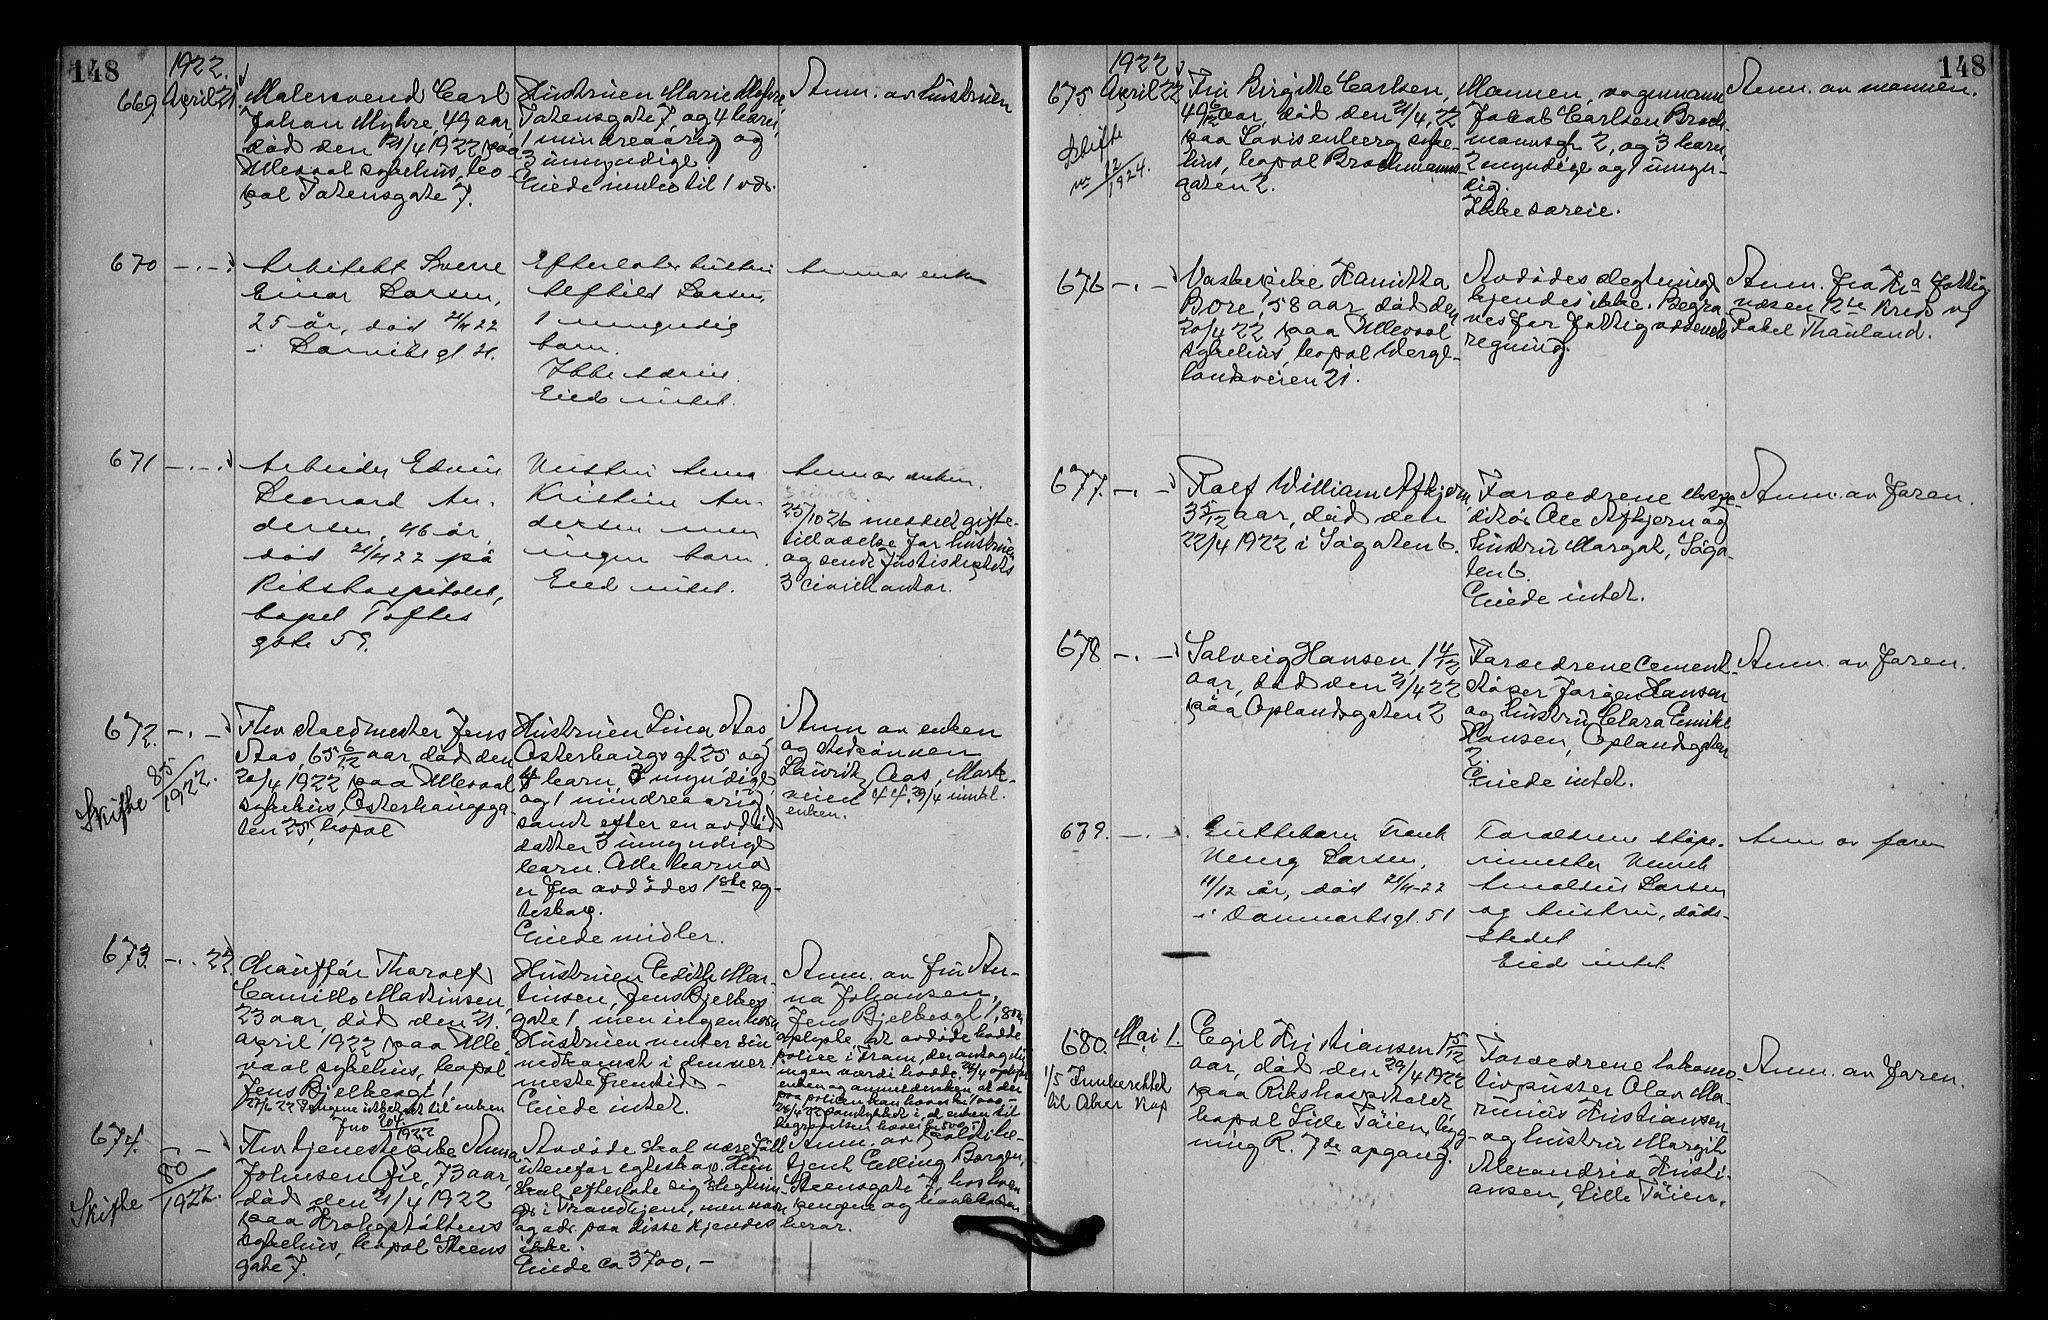 148
1922.
669. April 21.
Malersvend Carl
Johan Myhre, 49 aar,
død den 21/4 1922 paa
Ullevaal sykehus, bo-
pæl Totensgate 7.
Hustruen Marie Myhre,
Totensgate 7, og 4 barn,
1 mindreaarig og
3 umyndige.
Eiede intet
Anm. av hustruen
670 -.-.
Arkitekt Sverre
Einar Larsen,
25 år, død 21/4 22
i Larviksgt.
Efterlater hustru
Larsen,
1 umyndig
barn.
Ikke særeie.
Eied intet.
Anm av enken
671 -.-.
Arbeider Edvin
Leonard An-
dersen, 46 år,
død 21/4 22 på
Rikshospitalet,
bopel Toftes
gate 59.
Hustru Anna
Kristine An-
dersen men
ingen barn.
Eied intet.
Anm av enken.
25/10 26 meddelt gifte-
tilladelse for hustruen
og sendt Justisdeptets
3 civilkontor.
672. -.-
Skifte 85/1922.
Fhv staldmester Jens
Aas, 65 6/12 aar, død den
20/4 1922 paa Ullevaal
sykehus, Osterhausga-
ten 25, bopæl
Hustruen Lina Aas,
Osterhausgt. 25 og
4 barn, 3 myndige
og 1 mindreaarig,
samt efter en avdød
datter 3 umyndige
barn. Alle barna
er fra avdødes 1ste eg-
teskap.
Eiede midler.
Anm av enken
og stedsønnen
Lauritz Aas, Mark-
veien 44. 29/4
enken.
673. -.- 22.
Chauffør Thorolf
Camillo Martinsen,
23 aar, død den 21.
april 1922 paa Ulle-
vaal sykehus, bopæl
Jens Bjelkesgt 1.
27/6 22 Pengene utbetalt til enken
Jno 1922
Hustruen Edith Mar-
tinsen, Jens Bjelkes
gate 1 men ingen barn
Hustruen venter sin
nedkomst i den nær-
meste fremtid.-
Eiede intet.
Anm. av fru An-
na Johansen,
Jens Bjelkesgt 1, som
oplyste, at avdøde hadde
police i Fram, der antagelig
ingen værdi hadde.
enken og anmeldersken at den
674. -
Skifte 80/1922.
Fhv tjenestepike Anna
Johnsen Øie, 73 aar,
død den 21/4 1922
paa Krohgstøttens
sykehus, bopæl Steens
gate 7.
Avdøde skal være født
utenfor egteskap. Hun
skal efterlate sig slegtnin-
ge i Trondhjem, men navn
og adr. paa disse kjendes
ikke.
Eiede ca 3700,-
Anm. av
tjent Elling Borgen,
Steensgate 7, hos hvem
pengene og bankboken
beror.
148
1922
675 April 22
Skifte
nr 12/1924.
Fru Birgitte Carlsen,
49 6/12 aar, død den 21/4 22
paa Lovisenberg syke-
hus, bopæl Brochmanns-
gaten 2.
Mannen, vognmann
Jacob Carlsen Broch-
mannsgt 2, og 3 barn,
2 myndige og 1 umyn-
dig.
Ikke særeie.
Anm. av mannen.
676 -.-
Vaskepike Hanitta
Bore, 58 aar, død den
20/4 22 paa Ullevaal
sykehus, bopæl Werge-
landsveien 21.
Avdødes slegtninge
kjendes ikke. Begra-
ves for fattigvæsenets
regning.
Anm. fra Kra Fattig-
væsen 2den kreds v/
Rakel Thauland.
677. -.-
Rolf William Afkjern,
3 5/12 aar, død den
22/4 1922 i Søgaten 6.
Forældrene ekspe-
ditør Ole Afkjern og
hustru Margot, Søga-
ten 6.
Eiede intet.
Anm. av faren.
678 -.-
Solveig Hansen, 1 4/12
aar, død den 21/4 22
paa Oplandsgaten 2
Forældrene cement-
støper Jørgen Hansen
og hustru Clara Emilie
Hansen, Oplandsgaten
2.
Eiede intet.
Anm. av faren.
679. -.-.
Guttebarn Frank
Henry Larsen,
11/12 år, død 21/4-22
i Danmarksgt. 51
Foreldrene støpe-
rimester Henrik
Larsen
og hustru, døds-
stedet
Eied intet
Anm av faren
680. Mai 1.
1/5
til Aker
Egil Kristiansen 1 5/12
aar, død den 29/4 1922
paa Rikshospitalet,
bopæl Lille Tøien, byg-
ning R. 7de opgang.
Forældrene lokomo-
tivpusser Olav Ma-
rinius Kristiansen
og hustru Margit
Alexandria Kristi-
ansen, Lille Tøien.
Anm. av faren.